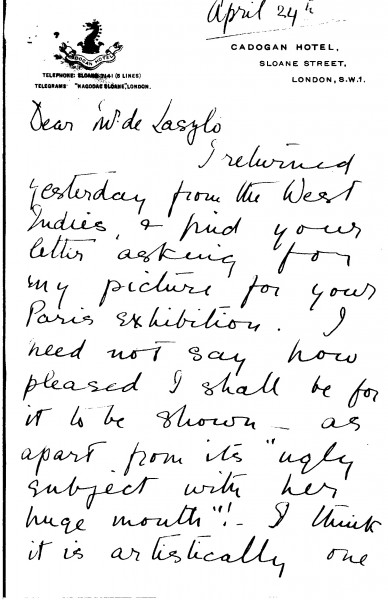 April 24th
CADOGAN HOTEL
CADOGAN HOTEL,
SLOANE STREET,
LONDON, S.W.1.
TELEPHONE: SLOANE 7141 (6 LINES)
TELEGRAMS "NAGODAC SLOANE", LONDON.
Dear Mr de Laszlo
I returned
yesterday from the West
Indies, & find your
letter asking for
my picture for your
Paris exhibition. I
need not say how
pleased I shall be for
it to be shown – as
apart from its "ugly
subject with her
huge mouth"! – I think
it is artistically one